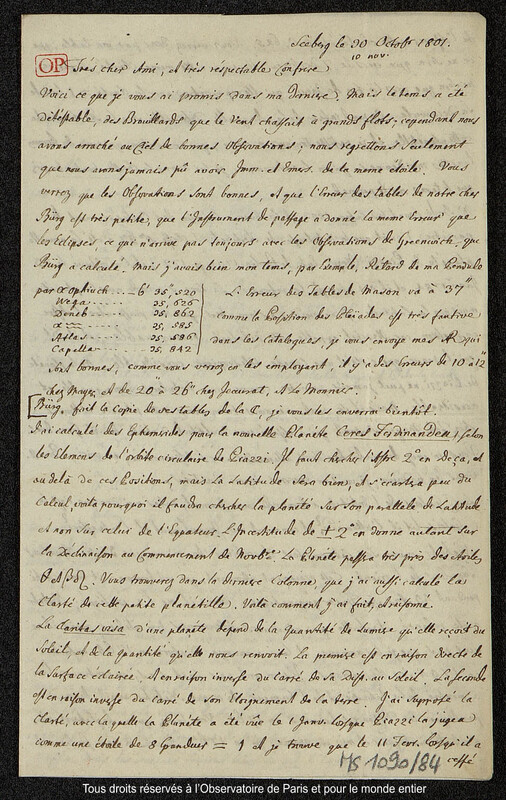 Seeberg le 30 Octobr 1801.
10 nov.
OP
Très cher Ami, et très respectable Confrere
Voici ce que je vous ai promis dans ma derniere, Mais le tems a été
détestable, des Brouillards que le vent chassait à grands flots; cependant nous
avons arraché au Ciel de bonnes Observations; nous regrettons seulement
que nous avons jamais pû avoir Imm. et Emers. de la meme étoile. Vous
verrez que les Observations sont bonnes, et que l'Erreur des tables de notre cher
Bürg est très petite; que l'Instrument de passage a donné la meme Erreur que
les Eclipses, ce qui n'arrive pas toujours avec les Observations de Greenwich, que
Bürg a calculé. Mais j'avais bien mon tems, par Exemple, Retard de ma Pendule
par α ophiuch ... – 6' 35,"520
Wega ... 25, 626
Deneb ... 25, 862
α ♒ ... 25, 585
Atlas ... 25, 586
Capella ... 25, 842
L'Erreur des Tables de Mason va à 37"
comme la Position des Pleiades est très fautive
dans les Catalogues, je vous envoye mes AR qui
sont bonnes, comme vous verrez en les employant, il y a des Erreurs de 10 à 12"
chez Mayer, et de 20" à 26" chez Jeaurat, et Le Monnier.
[Bürg, fait la Copie de ses tables de la ☾, je vous les enverrai bientôt.
J'ai calculé des Ephemerides pour la nouvelle Planète Ceres Ferdinandea, selon
les Elemens de l'orbite circulaire de Piazzi. Il faut chercher l'Astre 2° en Deça, et
au delà de ces Positions, mais la Latitude sera bien, et s'écartera peu du
Calcul, voila pourquoi il faudra chercher la planète sur son parallele de Latitude
et non sur celui de l'Equateur. L'Incertitude de ± 2° en donne autant sur
la Déclinaison au Commencement de Novbr. La Planète passera très près des étoiles
Vous trouverez dans la derniere Colonne, que j'ai aussi calculé la
Clarté de cette petite planétille. Voila comment j'ai fait, et raisonné.
La Claritas visa d'une planète depend de la Quantité de Lumiere qu'elle reçoit du
Soleil, et de la quantité qu'elle nous renvoit. La premiere est en raison directe de
la Surface éclairée, et en raison inverse du Carré de sa Dist. au Soleil. La seconde
est en raison inverse du Carré de son Eloignement de la terre. J'ai supposé la
Clarté, avec laquelle la Planète a été vûe le 1 Janv. lorsque Piazzi la jugea
comme une étoile de 8 Grandeur = 1 et je trouve que le 11 Fevr. lorsqu'il a
cessé
MS 1090/84
Tous droits réservés à l'Observatoire de Paris et pour le monde entier